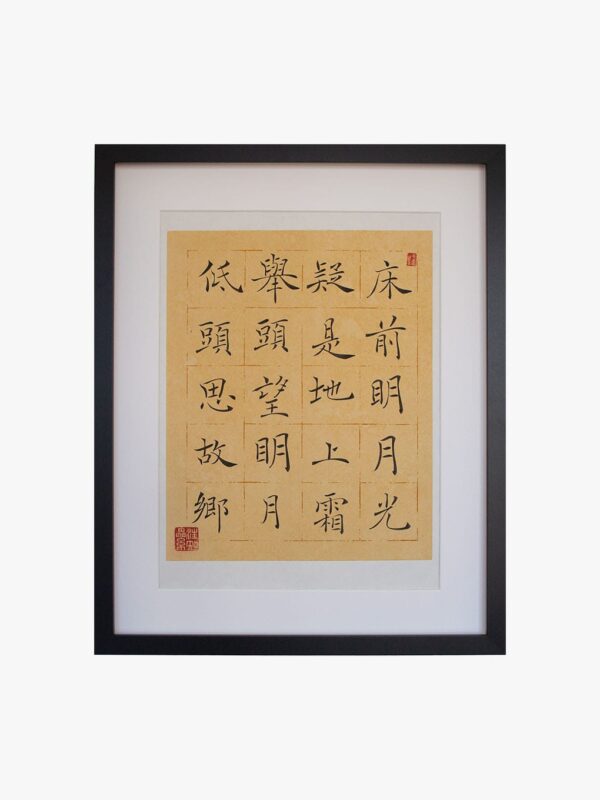 床前明月光
疑是地上霜
舉頭望明月
低頭思故鄉